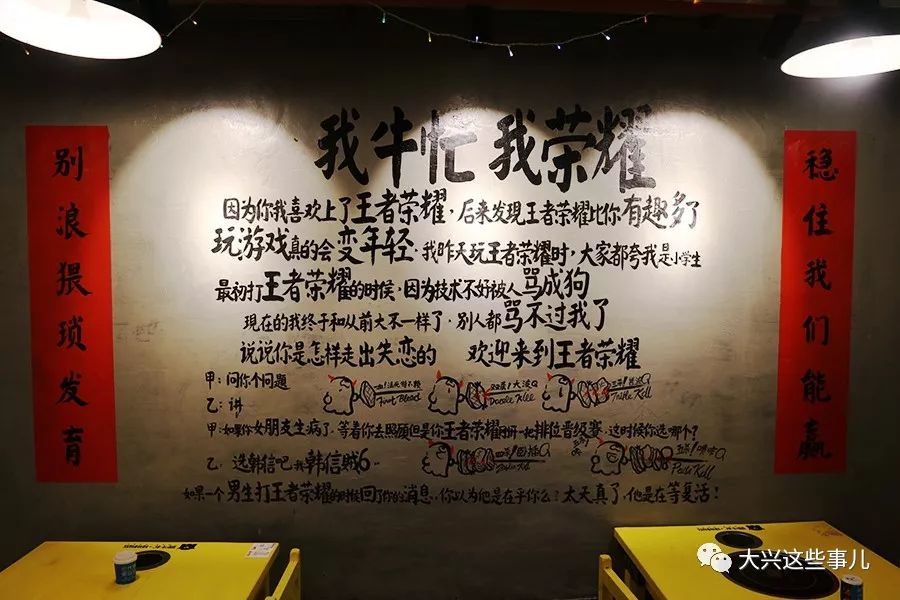 我牛忙 我荣耀
别浪猥琐发育
稳住我们能赢
因为你我喜欢上了王者荣耀，后来发现王者荣耀比你有趣多了
玩游戏真的会变年轻，我昨天玩王者荣耀时，大家都夸我是小学生
最初打王者荣耀的时候，因为技术不好被人骂成狗
现在的我终于和从前大不一样了，别人都骂不过我了
说说你是怎样走出失恋的 欢迎来到王者荣耀
甲：问你个问题
First Blood
乙：讲
甲：如果你女朋友生病了，等着你去照顾但是你王者荣耀排位晋级赛，这时候你选哪个？
乙：选韩信吧我韩信贼6
如果一个男生打王者荣耀的时候回了你的消息，你以为他是在乎你么？太天真了，他是在等复活！
大兴这些事儿